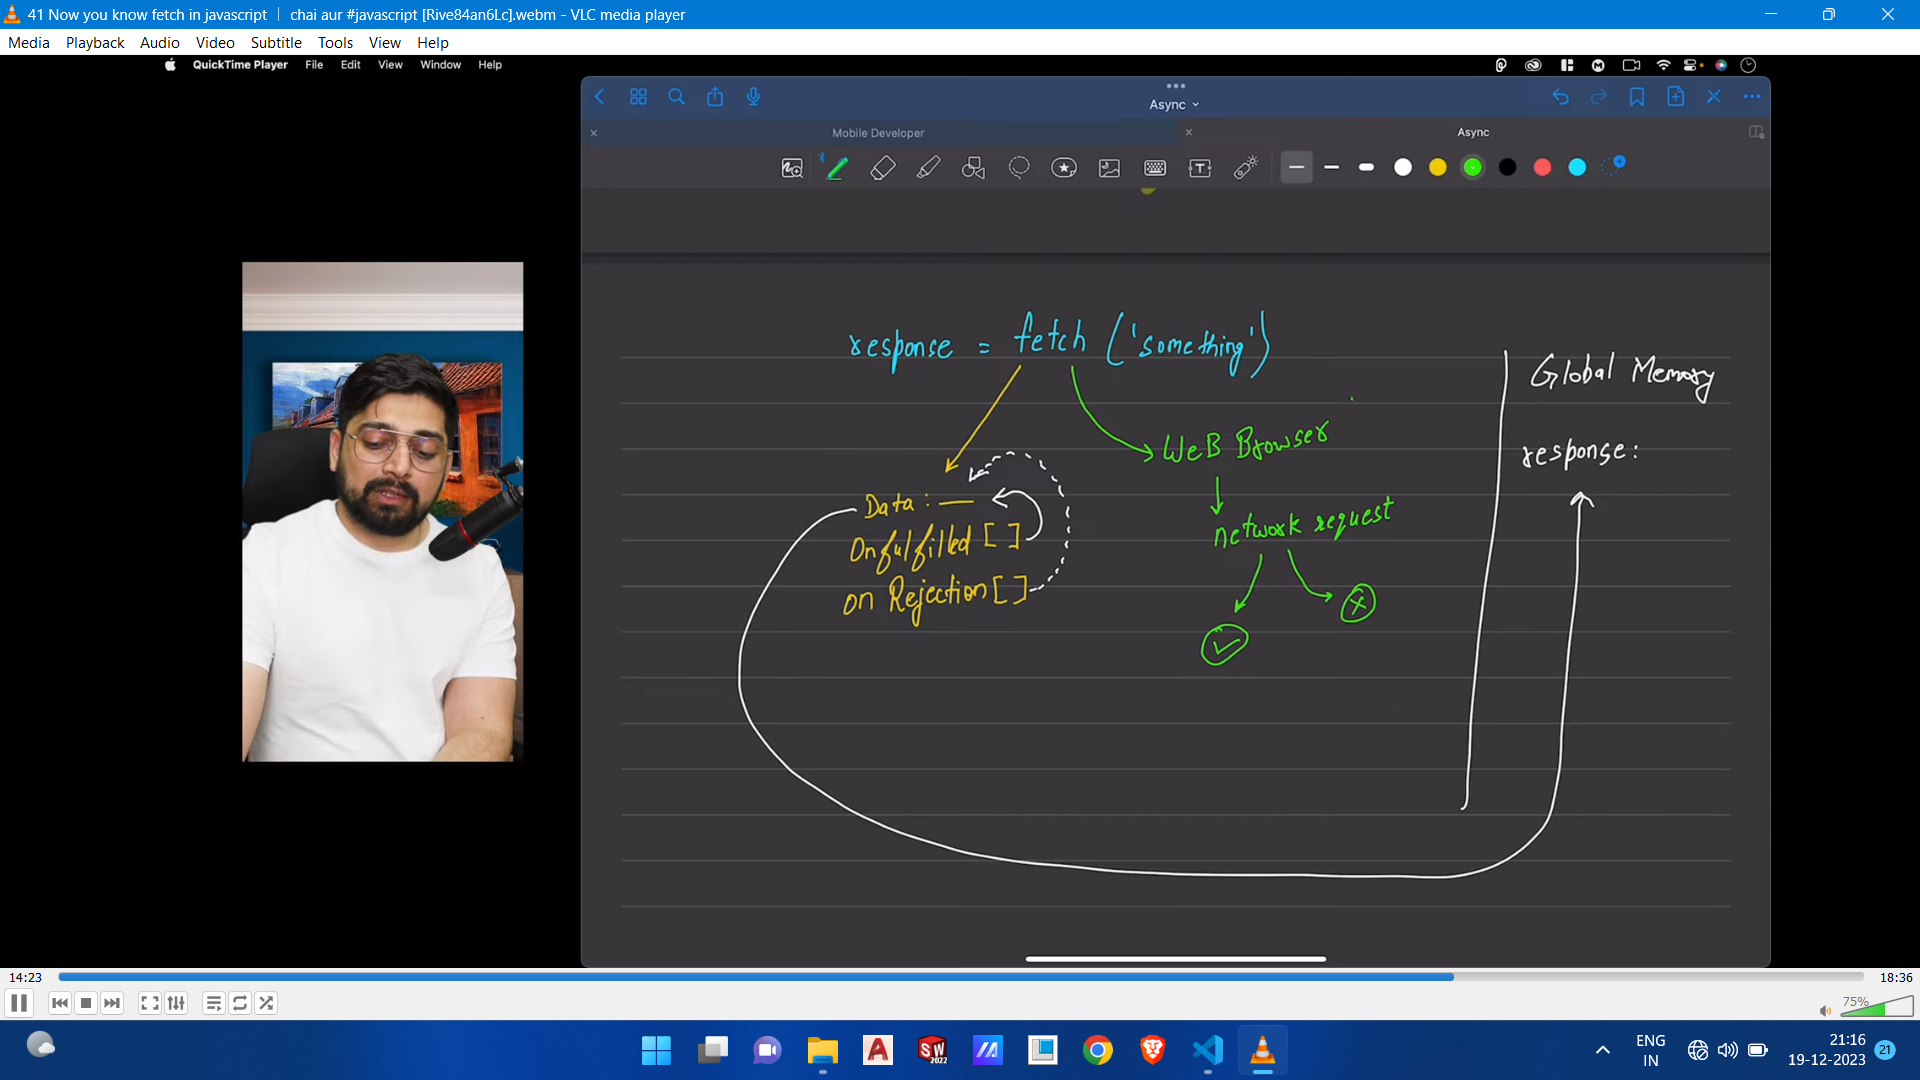 41 Now you know fetch in javascript ｜ chai aur #javascript [Rive84an6Lc].webm - VLC media player
Media Playback Audio Video Subtitle Tools View Help
QuickTime Player File Edit View Window Help
Async
Mobile Developer
Async
response = fetch ('something')
Global Memory
WeB Browser
response:
Data : —
network request
Onfulfilled [ ]
on Rejection [ ]
14:23
18:36
75%
SW
2022
ENG
IN
21:16
19-12-2023
21